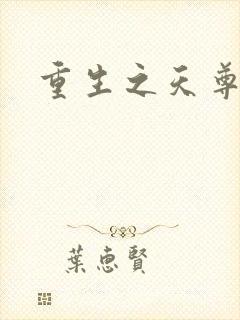 重生之天尊
葉惠賢